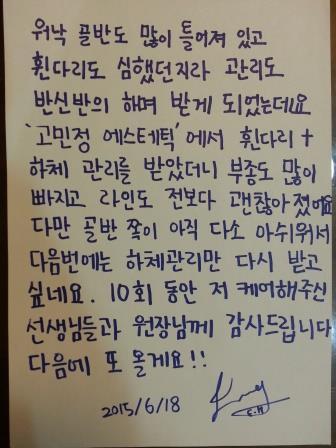 워낙 골반도 많이 틀어져 있고
휜다리도 심했던지라 관리도
반신반의 하며 받게 되었는데요
'고민정 에스테틱'에서 휜다리 +
하체 관리를 받았더니 부종도 많이
빠지고 라인도 전보다 괜찮아졌어요
다만 골반 쪽이 아직 다소 아쉬워서
다음번에는 하체관리만 다시 받고
싶네요. 10회 동안 저 케어해주신
선생님들과 원장님께 감사드립니다
다음에 또 올게요!!
2015/6/18